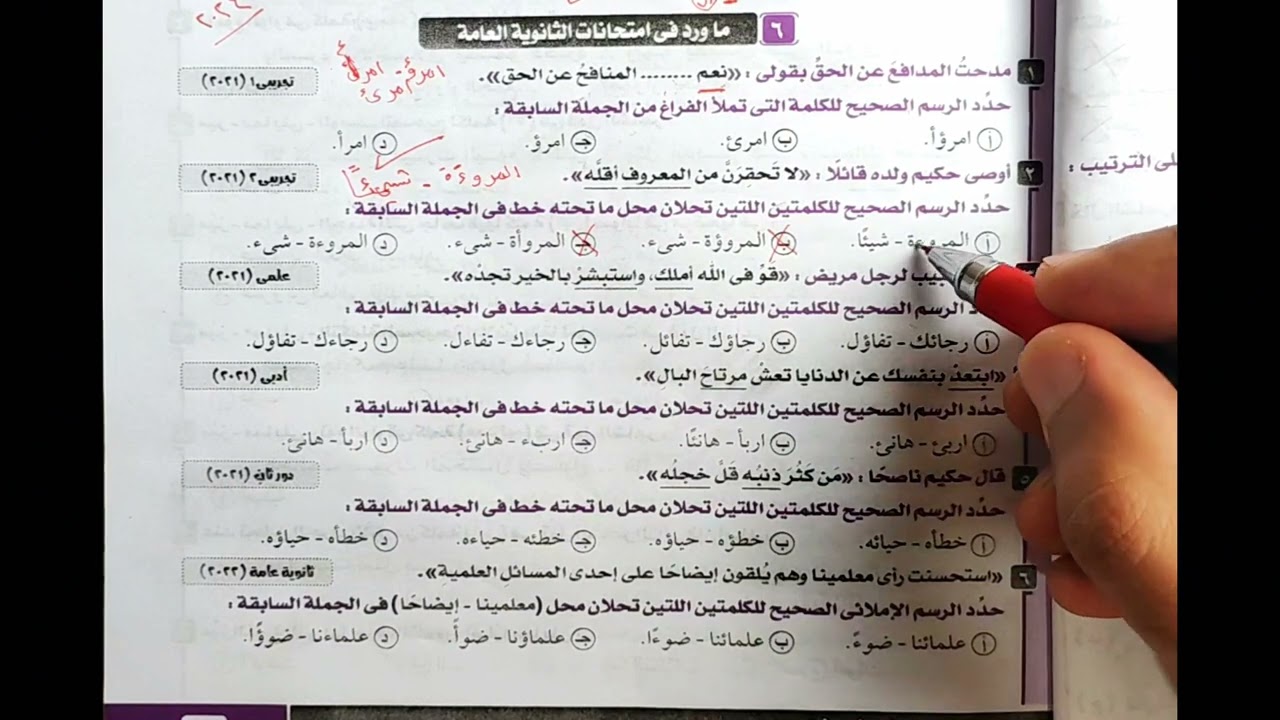 ٢٠٢٤
٦ ما ورد فى امتحانات الثانوية العامة
امرؤ - امرأ
امرئ
١ مدحتُ المدافعَ عن الحقِّ بقولى : «نِعم ........ المنافحُ عن الحق». تجريبى ١ (٢٠٢١)
حدِّد الرسم الصحيح للكلمة التى تملأ الفراغ من الجملة السابقة :
أ امرؤأ. ب امرئ. جـ امرؤ. د امرأ.
المروءة - شيئًا
٢ أوصى حكيم ولده قائلًا : «لا تَحقِرَنَّ من المعروف أقلَّه». تجريبى ٢ (٢٠٢١)
حدِّد الرسم الصحيح للكلمتين اللتين تحلان محل ما تحته خط فى الجملة السابقة :
أ المروءة - شيئًا. ب المروؤة - شىء. جـ المروأة - شىء. د المروءة - شىء.
لرجل مريض : «قوِّ فى الله أملك، واستبشرْ بالخير تجدْه». علمى (٢٠٢١)
الرسم الصحيح للكلمتين اللتين تحلان محل ما تحته خط فى الجملة السابقة :
أ رجائك - تفاؤل. ب رجاؤك - تفائل. جـ رجاءك - تفاءل. د رجاءك - تفاؤل.
«ابتعدْ بنفسك عن الدنايا تعشْ مرتاحَ البال». أدبى (٢٠٢١)
حدِّد الرسم الصحيح للكلمتين اللتين تحلان محل ما تحته خط فى الجملة السابقة :
أ اربئ - هانئ. ب اربأ - هانئًا. جـ اربء - هانئ. د اربأ - هانئ.
٥ قال حكيم ناصحًا : «مَن كَثُرَ ذنبُه قلَّ خجلُه». دور ثان (٢٠٢١)
حدِّد الرسم الصحيح للكلمتين اللتين تحلان محل ما تحته خط فى الجملة السابقة :
أ خطأه - حيائه. ب خطؤه - حياؤه. جـ خطئه - حياءه. د خطأه - حياؤه.
٦ «استحسنت رأى معلمينا وهم يُلقون إيضاحًا على إحدى المسائل العلمية». ثانوية عامة (٢٠٢٢)
حدِّد الرسم الإملائى الصحيح للكلمتين اللتين تحلان محل (معلمينا - إيضاحًا) فى الجملة السابقة :
أ علمائنا - ضوءً. ب علمائنا - ضوءًا. جـ علماؤنا - ضوأً. د علماءنا - ضوؤًا.
لى الترتيب :